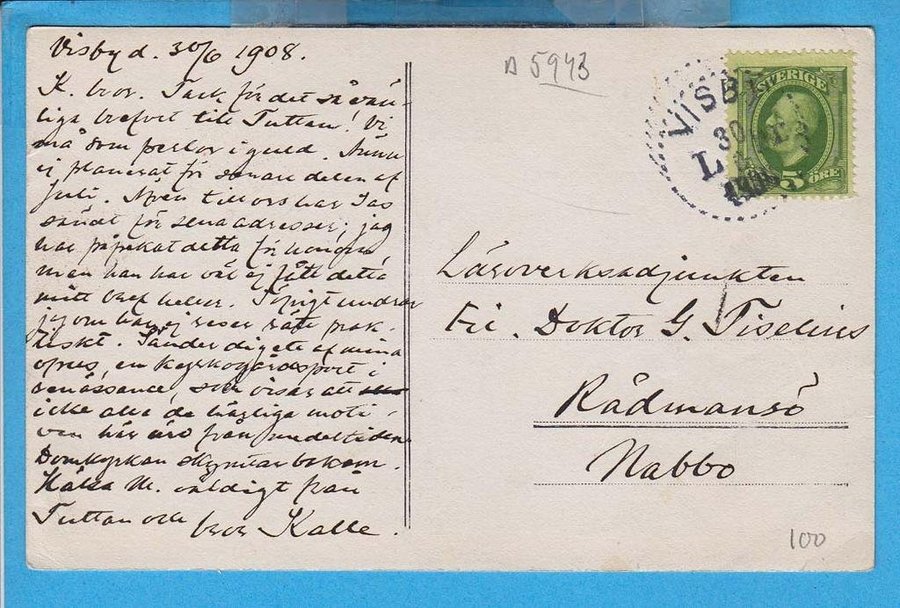 Visby d. 30/6 1908.
K. bror. Tack för det så vän-
liga brefvet till Tuttan! Vi
må som perlor i guld. Ännu
ej planerat för senare delen af
Juli. Även till oss har
sändt för sena adresser; jag
har påpekat detta för honom,
men han har väl ej fått detta
mitt bref heller. Töpigt undrar
jag om han ej reser rätt prak-
tiskt. Sänder dig ett af mina
opus, en kyrkogårdsport i
renässance, som visar att
icke alla de tägliga moti-
ven här äro från medeltiden.
Domkyrkan skymtar bakom.
Hälsa M. väldigt från
Tuttan och bror Kalle.
A 5943
VISBY
30
L
1908
SVERIGE
5 ÖRE
Läroverksadjunkten
Fil. Doktor G. Tiselius
Rådmansö
Nabbo
100